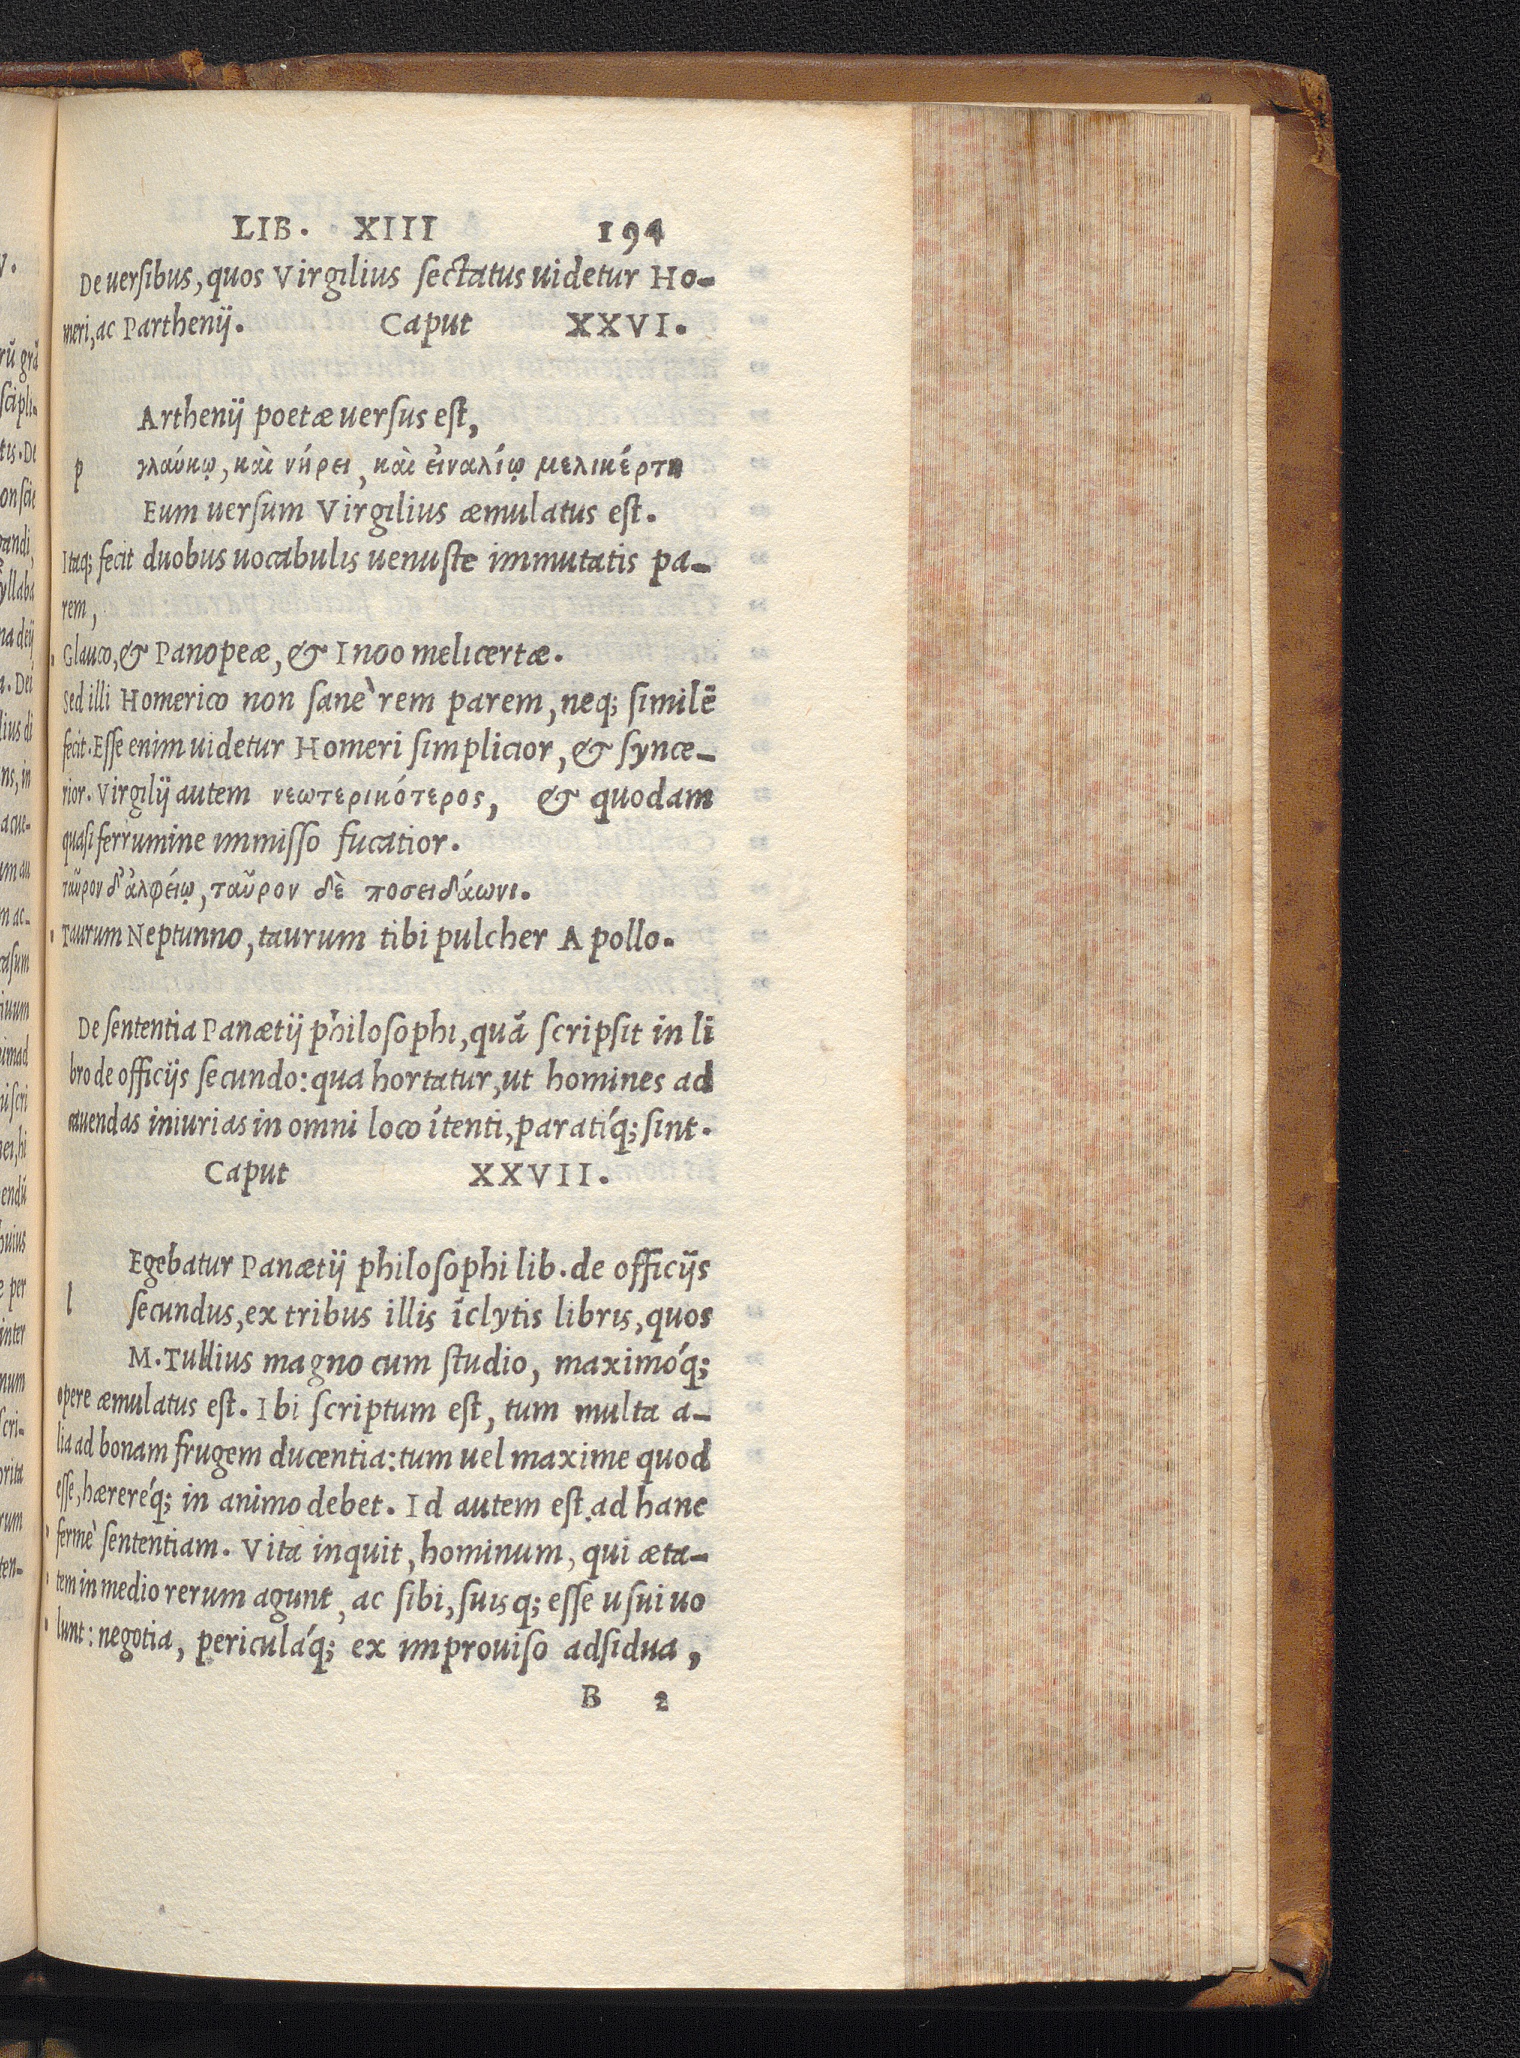 LIB. XIII 194
De uersibus, quos Virgilius sectatus uidetur Ho-
meri, ac Parthenij. Caput XXVI.
Arthenij poetæ uersus est,
p γλαύκῳ, καὶ νήρει, καὶ εἰναλίῳ μελικέρτῃ
Eum uersum Virgilius æmulatus est.
Itaq; fecit duobus uocabulis uenuste immutatis pa-
rem,
Glauco, & Panopeæ, & Inoo melicertæ.
Sed illi Homerico non sanè rem parem, neq; similē
fecit. Esse enim uidetur Homeri simplicior, & synce-
rior. Virgilij autem νεωτερικότερος, & quodam
quasi ferrumine immisso fucatior.
ταῦρον δ' ἀλφείῳ, ταῦρον δὲ ποσειδάωνι.
Taurum Neptunno, taurum tibi pulcher Apollo.
De sententia Panætij philosophi, quā scripsit in li
bro de officijs secundo: qua hortatur, ut homines ad
cauendas iniurias in omni loco ītenti, paratíq; sint.
Caput XXVII.
Egebatur Panætij philosophi lib. de officijs
l secundus, ex tribus illis īclytis libris, quos
M. Tullius magno cum studio, maximóq;
opere æmulatus est. Ibi scriptum est, tum multa a-
lia ad bonam frugem ducentia: tum uel maxime quod
esse, hærereq́; in animo debet. Id autem est ad hanc
fermè sententiam. Vita inquit, hominum, qui æta-
tem in medio rerum agunt, ac sibi, suisq; esse usui uo
lunt: negotia, periculáq; ex improuiso adsidua,
B 2